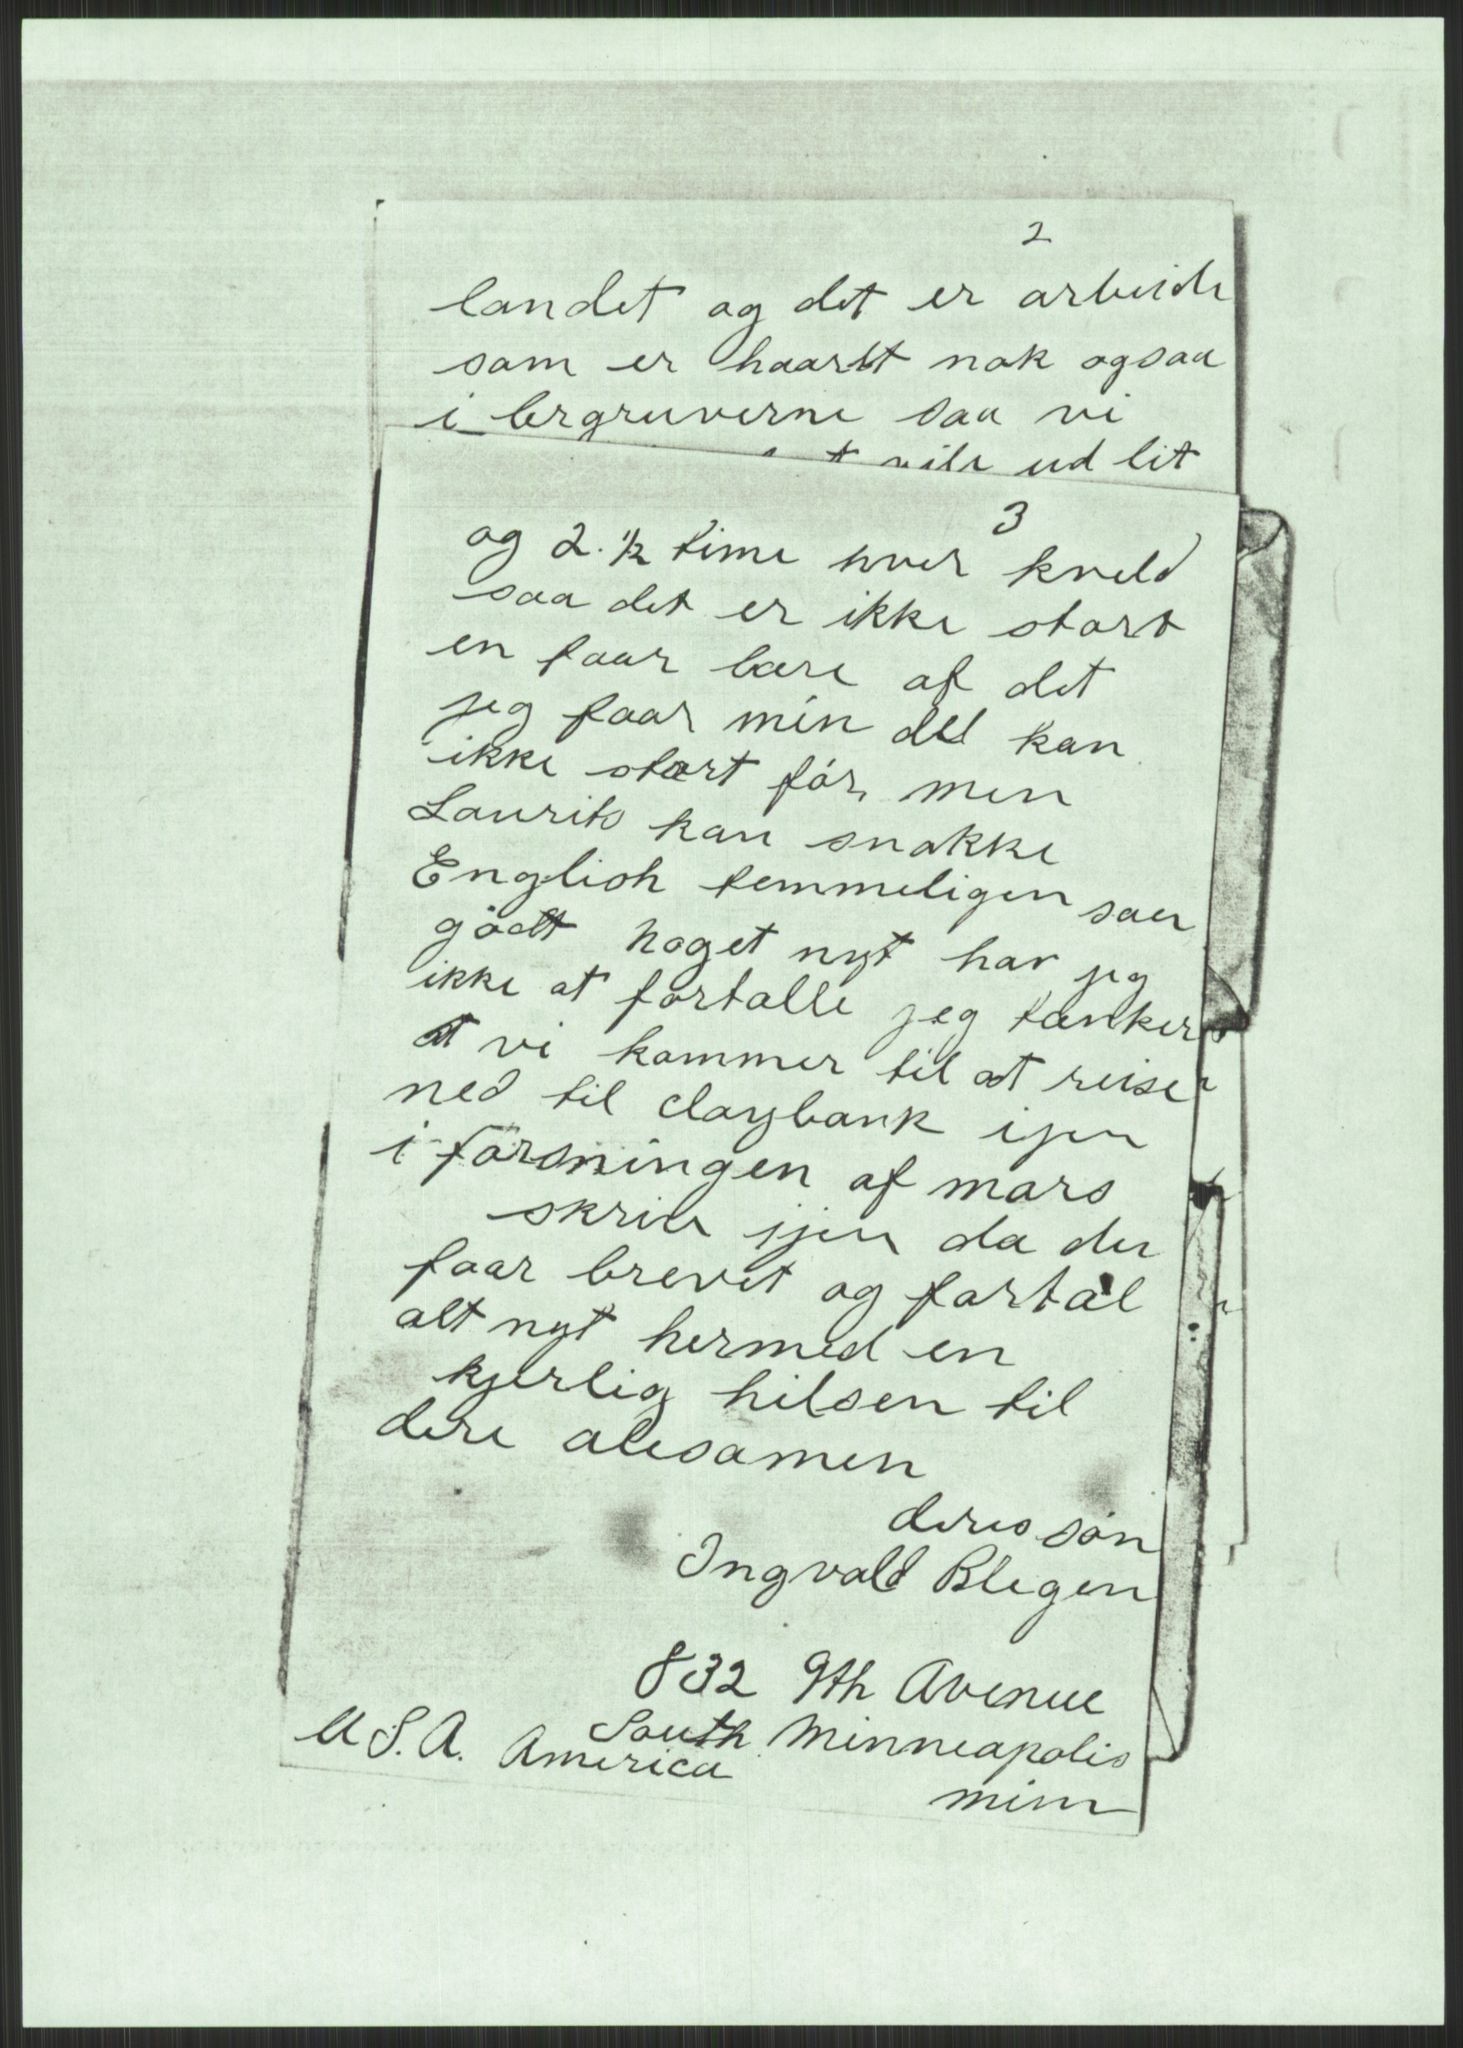 2
landet og det er arbeide
som er haardt nok ogsaa
i bergruverne saa vi
vile ud lit
3
og 2. 1/2 time hver kveld
saa det er ikke stort
en faar lære af det
jeg faar min del kan
ikke stort før, men
Laurits kan snakke
English temmeligen saa
gådt noget nyt har jeg
ikke at fortalle jeg tænker
at vi kommer til at reise
ned til claybank ijen
i førsningen af mars
skriv ijen da du
faar brevet og fortål
alt nyt hermed en
kjerlig hilsen til
dere allesamen
deres søn
Ingvald Blegen
832 9th Avenue
South Minneapolis
U S. A. America
minn